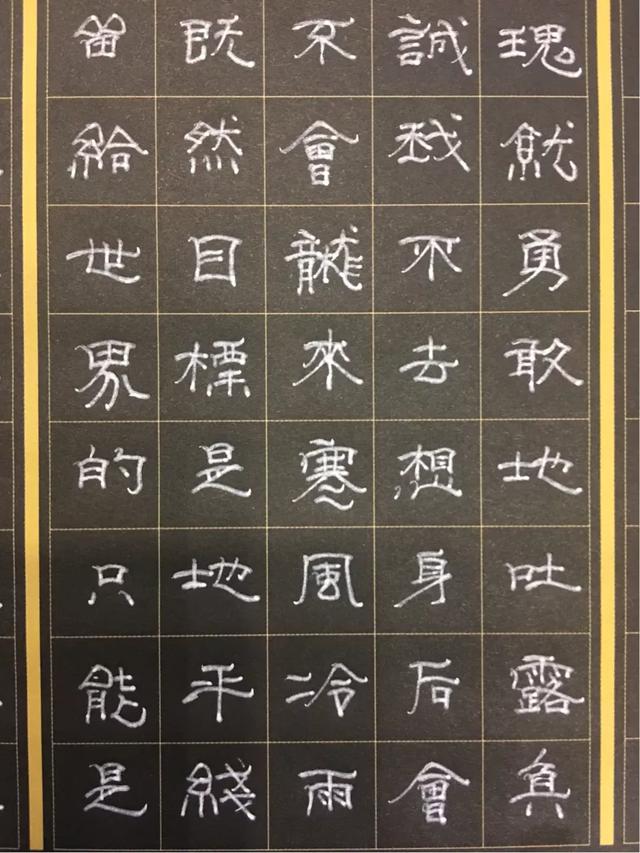 瑰就勇敢地吐露真
誠我不去想身后會
不會襲來寒風冷雨
既然目標是地平綫
留給世界的只能是